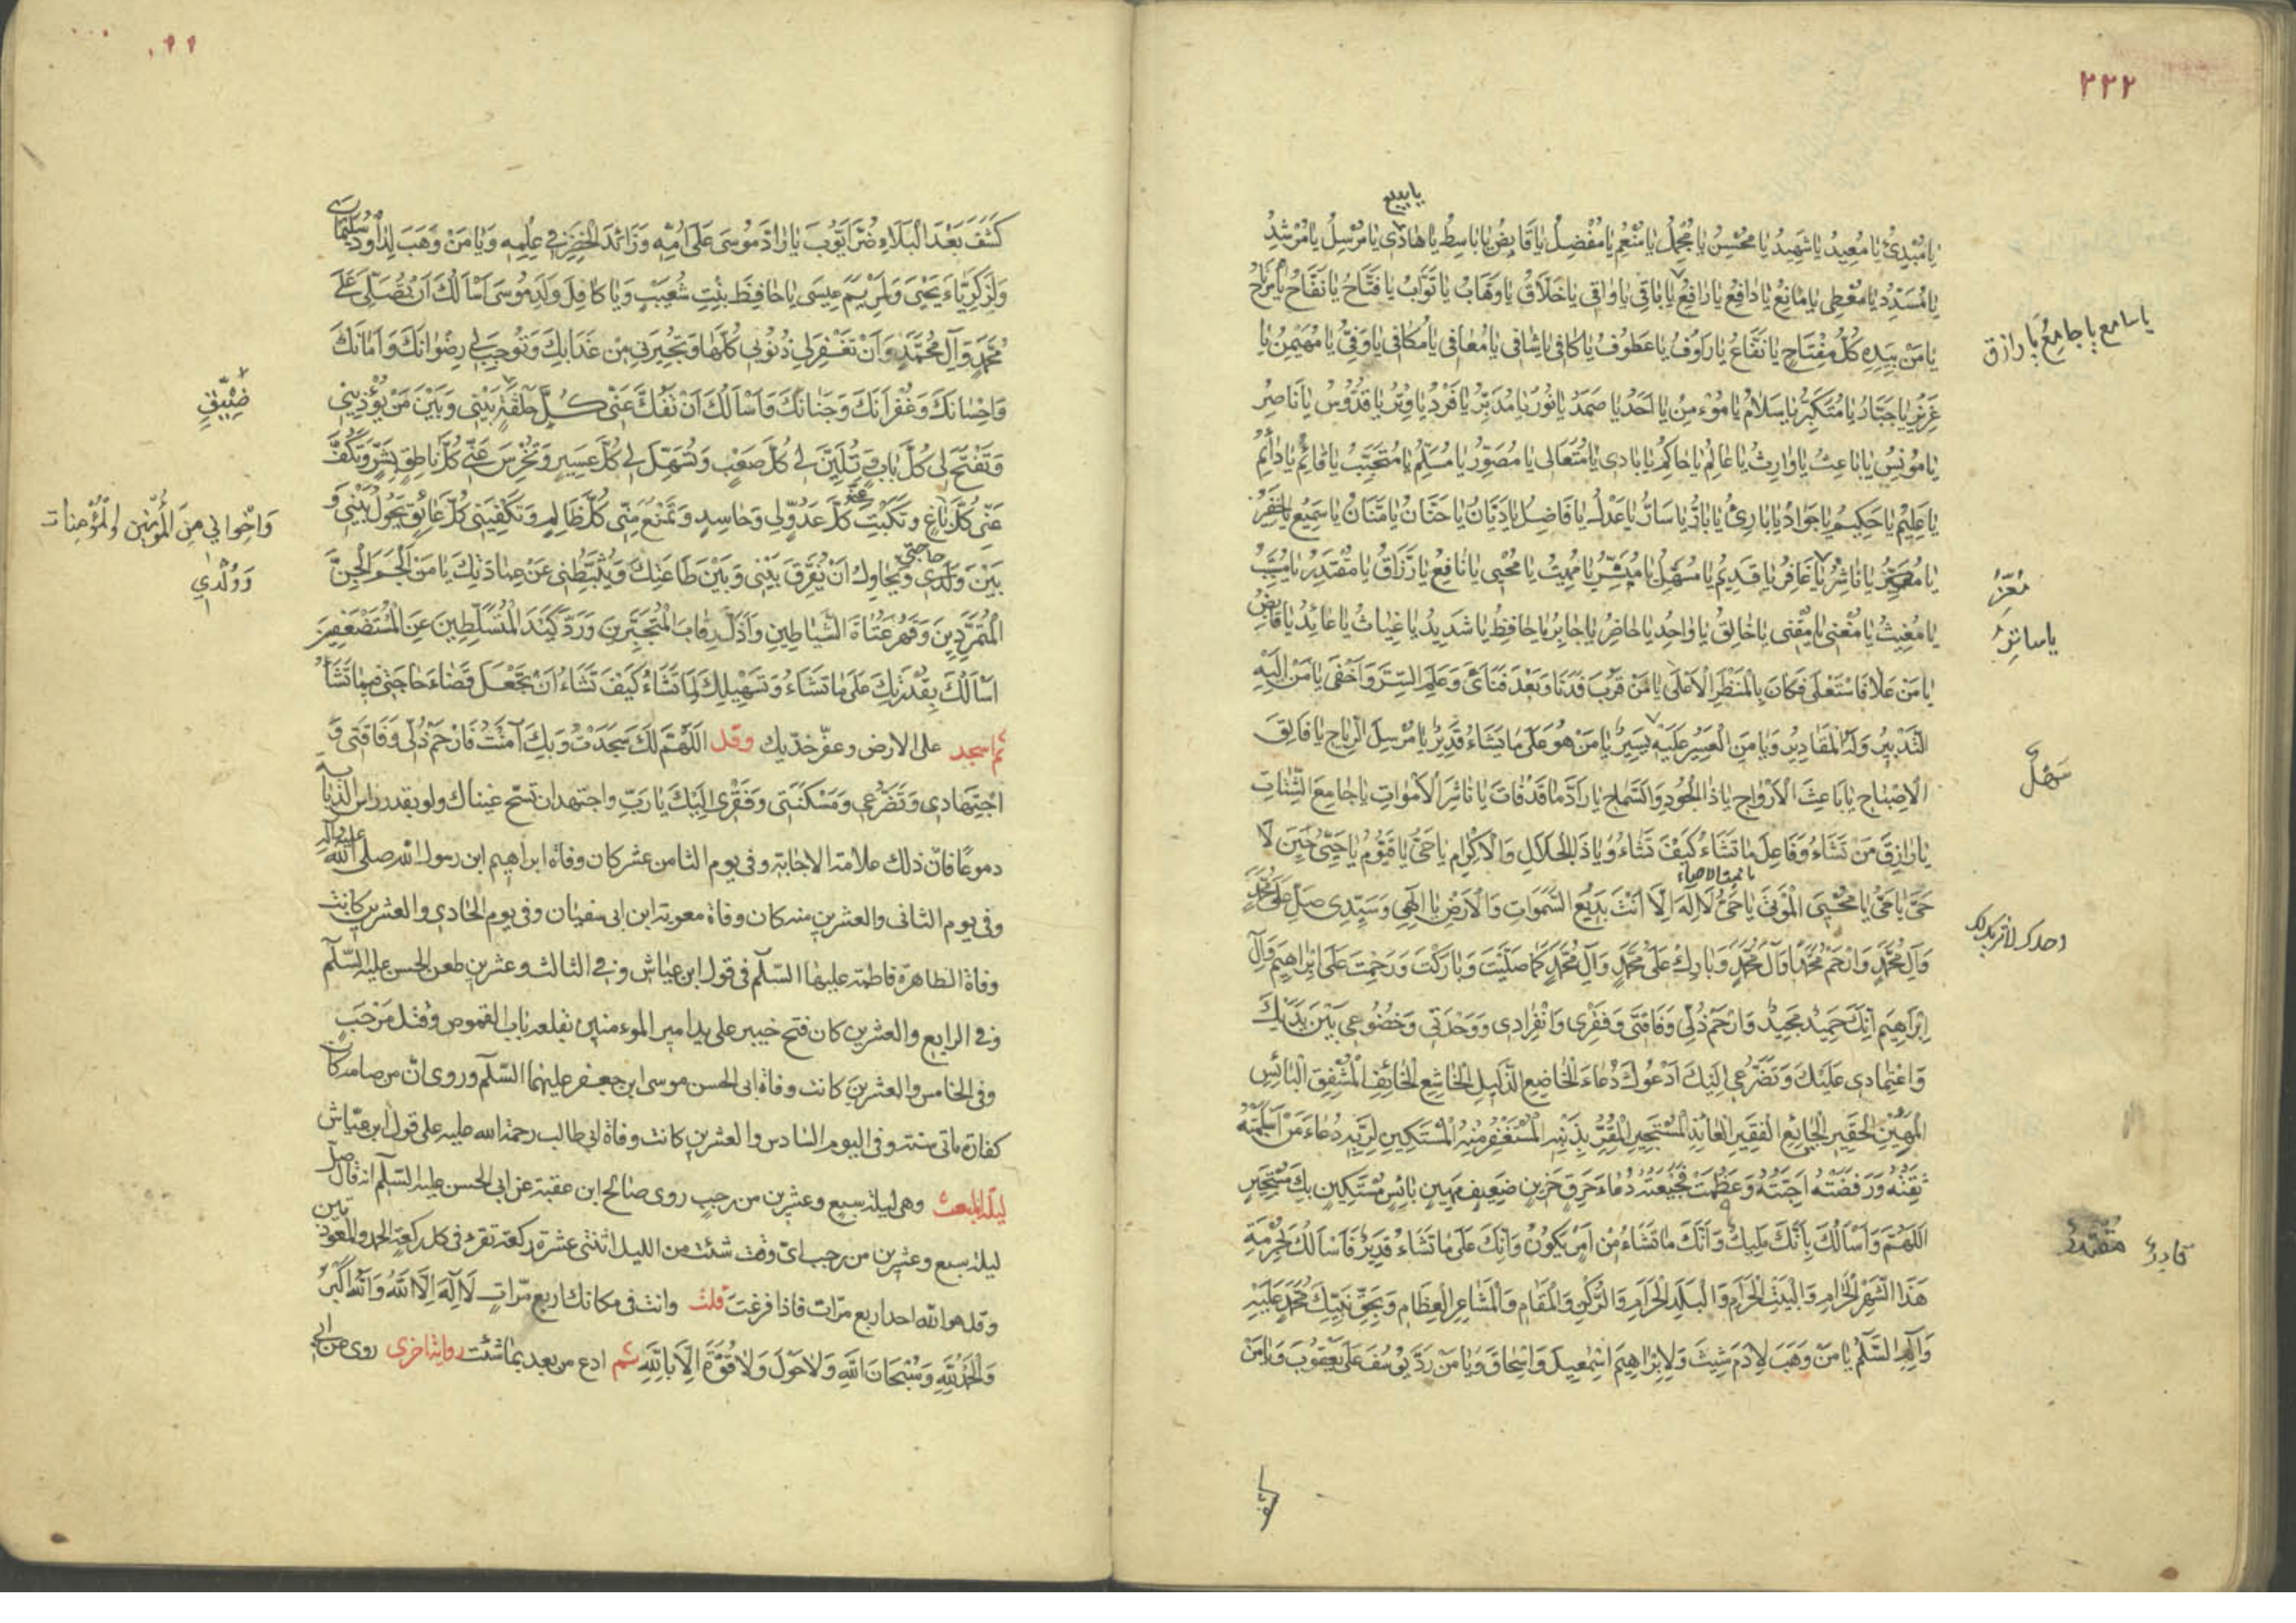 ٢٢٢
يا بديع
يَا مُبْدِئُ يَا مُعِيدُ يَا شَهِيدُ يَا مُحْسِنُ يَا مُجْمِلُ يَا مُنْعِمُ يَا مُفْضِلُ يَا قَابِضُ يَا بَاسِطُ يَا هَادِى يَا مُرْسِلُ يَا مُرْشِدُ
يَا مُسَدِّدُ يَا مُعْطِى يَا مَانِعُ يَا دَافِعُ يَا رَافِعُ يَا بَاقِى يَا وَاقِى يَا خَلَّاقُ يَا وَهَّابُ يَا تَوَّابُ يَا فَتَّاحُ يَا نَفَّاحُ يَا مُرْتَاحُ
يا سامع يا جامع يا رازق
يَا مَنْ بِيَدِهِ كُلُّ مِفْتَاحٍ يَا نَفَّاعُ يَا رَءُوفُ يَا عَطُوفُ يَا كَافِى يَا شَافِى يَا مُعَافِى يَا مُكَافِى يَا وَفِىُّ يَا مُهَيْمِنُ يَا
عَزِيزُ يَا جَبَّارُ يَا مُتَكَبِّرُ يَا سَلَامُ يَا مُؤْمِنُ يَا اَحَدُ يَا صَمَدُ يَا نُورُ يَا مُدَبِّرُ يَا فَرْدُ يَا وِتْرُ يَا قُدُّوسُ يَا نَاصِرُ
يَا مُونِسُ يَا بَاعِثُ يَا وَارِثُ يَا عَالِمُ يَا حَاكِمُ يَا بَادِى يَا مُتَعَالِى يَا مُصَوِّرُ يَا مُسَلِّمُ يَا مُتَحَبِّبُ يَا قَائِمُ يَا دَائِمُ
يَا عَلِيمُ يَا حَكِيمُ يَا جَوَادُ يَا بَارِئُ يَا بَارُّ يَا سَارُّ يَا عَدْلُ يَا فَاضِلُ يَا دَيَّانُ يَا حَنَّانُ يَا مَنَّانُ يَا سَمِيعُ يَا خَفِيرُ
مُعِزُّ
يَا نَاشِرُ يَا غَافِرُ يَا قَدِيمُ يَا مُسَهِّلُ يَا مُيَسِّرُ يَا مُمِيتُ يَا مُحْيِى يَا نَافِعُ يَا رَزَّاقُ يَا مُقْتَدِرُ يَا مُسَبِّبُ
يا ساتر
يَا مُغِيثُ يَا مُغْنِى يَا مُقْنِى يَا خَالِقُ يَا وَاحِدُ يَا حَاضِرُ يَا جَابِرُ يَا حَافِظُ يَا شَدِيدُ يَا غِيَاثُ يَا عَائِدُ يَا قَابِضُ
يَا مَنْ عَلَا فَاسْتَعْلَى فَكَانَ بِالْمَنْظَرِ الْاَعْلَى يَا مَنْ قَرُبَ فَدَنَا وَبَعُدَ فَنَاَىٰ وَعَلِمَ السِّرَّ وَاَخْفَى يَا مَنْ اِلَيْهِ
سَهْلٌ
التَّدْبِيرُ وَلَهُ الْمَقَادِيرُ وَيَا مَنِ الْعَسِيرُ عَلَيْهِ يَسِيرٌ يَا مَنْ هُوَ عَلَى مَا يَشَاءُ قَدِيرٌ يَا مُرْسِلَ الرِّيَاحِ يَا فَالِقَ
الْاِصْبَاحِ يَا بَاعِثَ الْاَرْوَاحِ يَا ذَا الْجُودِ وَالسَّمَاحِ يَا رَادَّ مَا قَدْ فَاتَ يَا نَاشِرَ الْاَمْوَاتِ يَا جَامِعَ الشَّتَاتِ
يَا رَازِقَ مَنْ تَشَاءُ وَفَاعِلَ مَا تَشَاءُ كَيْفَ تَشَاءُ وَيَا ذَا الْجَلَالِ وَالْاِكْرَامِ يَا حَىُّ يَا قَيُّومُ يَا حَىُّ حِينَ لَا
يا مميت الاحياء
حَىَّ يَا حَىُّ يَا مُحْيِىَ الْمَوْتَى يَا حَىُّ لَا اِلَهَ اِلَّا اَنْتَ بَدِيعُ السَّمَوَاتِ وَالْاَرْضِ يَا اِلَهِى وَسَيِّدِى صَلِّ عَلَى مُحَمَّدٍ
وحدك لا شريك لك
وَآلِ مُحَمَّدٍ وَارْحَمْ مُحَمَّداً وَآلَ مُحَمَّدٍ وَبَارِكْ عَلَى مُحَمَّدٍ وَآلِ مُحَمَّدٍ كَمَا صَلَّيْتَ وَبَارَكْتَ وَرَحِمْتَ عَلَى اِبْرَاهِيمَ وَآلِ
اِبْرَاهِيمَ اِنَّكَ حَمِيدٌ مَجِيدٌ وَارْحَمْ ذُلِّى وَفَاقَتِى وَفَقْرِى وَانْفِرَادِى وَوَحْدَتِى وَخُضُوعِى بَيْنَ يَدَيْكَ
وَاعْتِمَادِى عَلَيْكَ وَتَضَرُّعِى اِلَيْكَ اَدْعُوكَ دُعَاءَ الْخَاضِعِ الذَّلِيلِ الْخَاشِعِ الْخَائِفِ الْمُشْفِقِ الْبَائِسِ
الْمَهِينِ الْحَقِيرِ الْجَائِعِ الْفَقِيرِ الْعَائِذِ الْمُسْتَجِيرِ الْمُقِرِّ بِذَنْبِهِ الْمُسْتَغْفِرِ مِنْهُ الْمُسْتَكِينِ لِرَبِّهِ دُعَاءَ مَنْ اَسْلَمَتْهُ
ثِقَتُهُ وَرَفَضَتْهُ اَحِبَّتُهُ وَعَظُمَتْ فَجِيعَتُهُ دُعَاءَ حَرِقٍ حَزِينٍ ضَعِيفٍ مَهِينٍ بَائِسٍ مُسْتَكِينٍ بِكَ مُسْتَجِيرٍ
قادر مقتدر
اَللَّهُمَّ وَاَسْاَلُكَ بِاَنَّكَ مَلِيكٌ وَاَنَّكَ مَا تَشَاءُ مِنْ اَمْرٍ يَكُونُ وَاَنَّكَ عَلَى مَا تَشَاءُ قَدِيرٌ فَاَسْاَلُكَ بِحُرْمَةِ
هَذَا الشَّهْرِ الْحَرَامِ وَالْبَيْتِ الْحَرَامِ وَالْبَلَدِ الْحَرَامِ وَالرُّكْنِ وَالْمَقَامِ وَالْمَشَاعِرِ الْعِظَامِ وَبِحَقِّ نَبِيِّكَ مُحَمَّدٍ عَلَيْهِ
وَآلِهِ السَّلَامُ يَا مَنْ وَهَبَ لِاٰدَمَ شِيثَ وَلِاِبْرَاهِيمَ اِسْمٰعِيلَ وَاِسْحَاقَ وَيَا مَنْ رَدَّ يُوسُفَ عَلَى يَعْقُوبَ وَيَا مَنْ
كشف
كَشَفَ بَعْدَ الْبَلَاءِ ضُرَّ اَيُّوبَ يَا رَادَّ مُوسَى عَلَى اُمِّهِ وَزَائِدَ الْخِضْرِ فِى عِلْمِهِ وَيَا مَنْ وَهَبَ لِدَاوُدَ سُلَيْمَانَ
وَلِزَكَرِيَّاءَ يَحْيَى وَلِمَرْيَمَ عِيسَى يَا حَافِظَ بِنْتِ شُعَيْبٍ وَيَا كَافِلَ وَلَدِ مُوسَى اَسْاَلُكَ اَنْ تُصَلِّىَ عَلَى
مُحَمَّدٍ وَآلِ مُحَمَّدٍ وَاَنْ تَغْفِرَ لِى ذُنُوبِى كُلَّهَا وَتُجِيرَنِى مِنْ عَذَابِكَ وَتُوجِبَ لِى رِضْوَانَكَ وَاَمَانَكَ
وَاِحْسَانَكَ وَغُفْرَانَكَ وَجِنَانَكَ وَاَسْاَلُكَ اَنْ تَفُكَّ عَنِّى كُلَّ حَلْقَةٍ بَيْنِى وَبَيْنَ مَنْ يُؤْذِينِى
وَتَفْتَحَ لِى كُلَّ بَابٍ وَتُلَيِّنَ لِى كُلَّ صَعْبٍ وَتُسَهِّلَ لِى كُلَّ عَسِيرٍ وَتُخْرِسَ عَنِّى كُلَّ نَاطِقٍ بِشَرٍّ وَتَكُفَّ
عَنِّى كُلَّ بَاغٍ وَتَكْبِتَ عَنِّى كُلَّ عَدُوٍّ لِى وَحَاسِدٍ وَتَمْنَعَ مِنِّى كُلَّ ظَالِمٍ وَتَكْفِيَنِى كُلَّ عَائِقٍ يَحُولُ بَيْنِى وَ
وَاِخْوَانِي مِنَ الْمُؤْمِنِينَ وَالْمُؤْمِنَاتِ
وَوُلْدِي
بَيْنَ حاجتى وَلَدِى وَيُحَاوِلُ اَنْ يُفَرِّقَ بَيْنِى وَبَيْنَ طَاعَتِكَ وَيُثَبِّطَنِى عَنْ عِبَادَتِكَ يَا مَنْ اَلْجَمَ الْجِنَّ
الْمُتَمَرِّدِينَ وَقَهَرَ عُتَاةَ الشَّيَاطِينِ وَاَذَلَّ رِقَابَ الْمُتَجَبِّرِينَ وَرَدَّ كَيْدَ الْمُتَسَلِّطِينَ عَنِ الْمُسْتَضْعَفِينَ
اَسْاَلُكَ بِقُدْرَتِكَ عَلَى مَا تَشَاءُ وَتَسْهِيلِكَ لِمَا تَشَاءُ كَيْفَ تَشَاءُ اَنْ تَجْعَلَ قَضَاءَ حَاجَتِى فِيمَا تَشَاءُ
ثم اسجد على الارض وعفّر خدّيك وقل اَللَّهُمَّ لَكَ سَجَدْتُ وَبِكَ آمَنْتُ فَارْحَمْ ذُلِّى وَفَاقَتِى وَ
اجْتِهَادِى وَتَضَرُّعِى وَمَسْكَنَتِى وَفَقْرِى اِلَيْكَ يَا رَبِّ واجتهد ان تسحّ عيناك ولو بقدر راس الذبابة
دموعًا فانّ ذلك علامة الاجابة وفى يوم الثامن عشر كان وفاة ابراهيم ابن رسول الله صلى الله عليه وآله
وفى يوم الثانى والعشرين منه كان وفاة معوية ابن ابى سفيان وفى يوم الحادى والعشرين كانت
وفاة الطاهرة فاطمة عليها السّلام فى قول ابن عياش وفى الثالث وعشرين طعن الحسن عليه السّلام
وفى الرابع والعشرين كان فتح خيبر على يد امير المومنين بقلعه باب القموص وقتل مرحب
وفى الخامس والعشرين كانت وفاة ابى الحسن موسى ابن جعفر عليهما السّلام وروى انّ من صامه كان
كفارة ماتى سنة وفى اليوم السادس والعشرين كانت وفاة ابى طالب رحمة الله عليه على قول ابن عيّاش
ليلة المبعث وهى ليلة سبع وعشرين من رجب روى صالح ابن عقبة عن ابى الحسن عليه السّلام انه قال صلّ
ليلة سبع وعشرين من رجب اىّ وقت شئت من الليل اثنتى عشرة ركعة تقرء فى كل ركعة الحمد والمعوذتين
وقل هو الله احد اربع مرّات فاذا فرغت قلت وانت فى مكانك اربع مرّات لَا اِلَهَ اِلَّا اللهُ وَاللهُ اَكْبَرُ
وَالْحَمْدُ لِلّهِ وَسُبْحَانَ اللهِ وَلَا حَوْلَ وَلَا قُوَّةَ اِلَّا بِاللهِ ثم ادع من بعد بما شئت رواية اخرى روى عن ابى